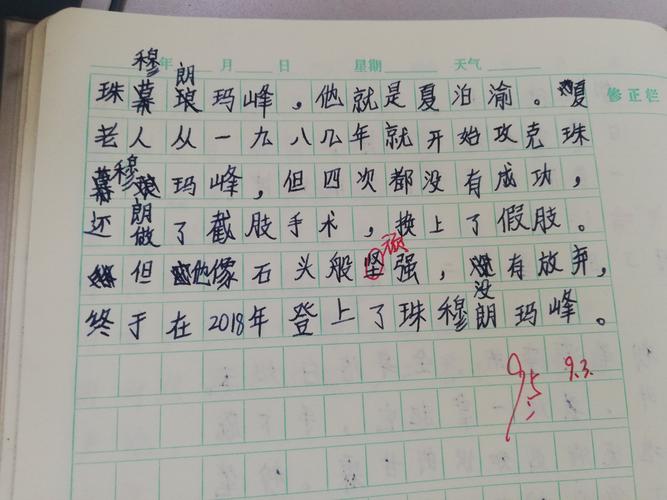 穆 年 月 日 星期 天气
朗
珠琅玛峰，他就是夏泊渝。夏 修正栏
老人从一九八几年就开始攻克珠
穆玛峰，但四次都没有成功，
朗
还做了截肢手术，换上了假肢。
顽
但他像石头般坚强，有放弃，
没
终于在2018年登上了珠穆朗玛峰。
95
9.3.